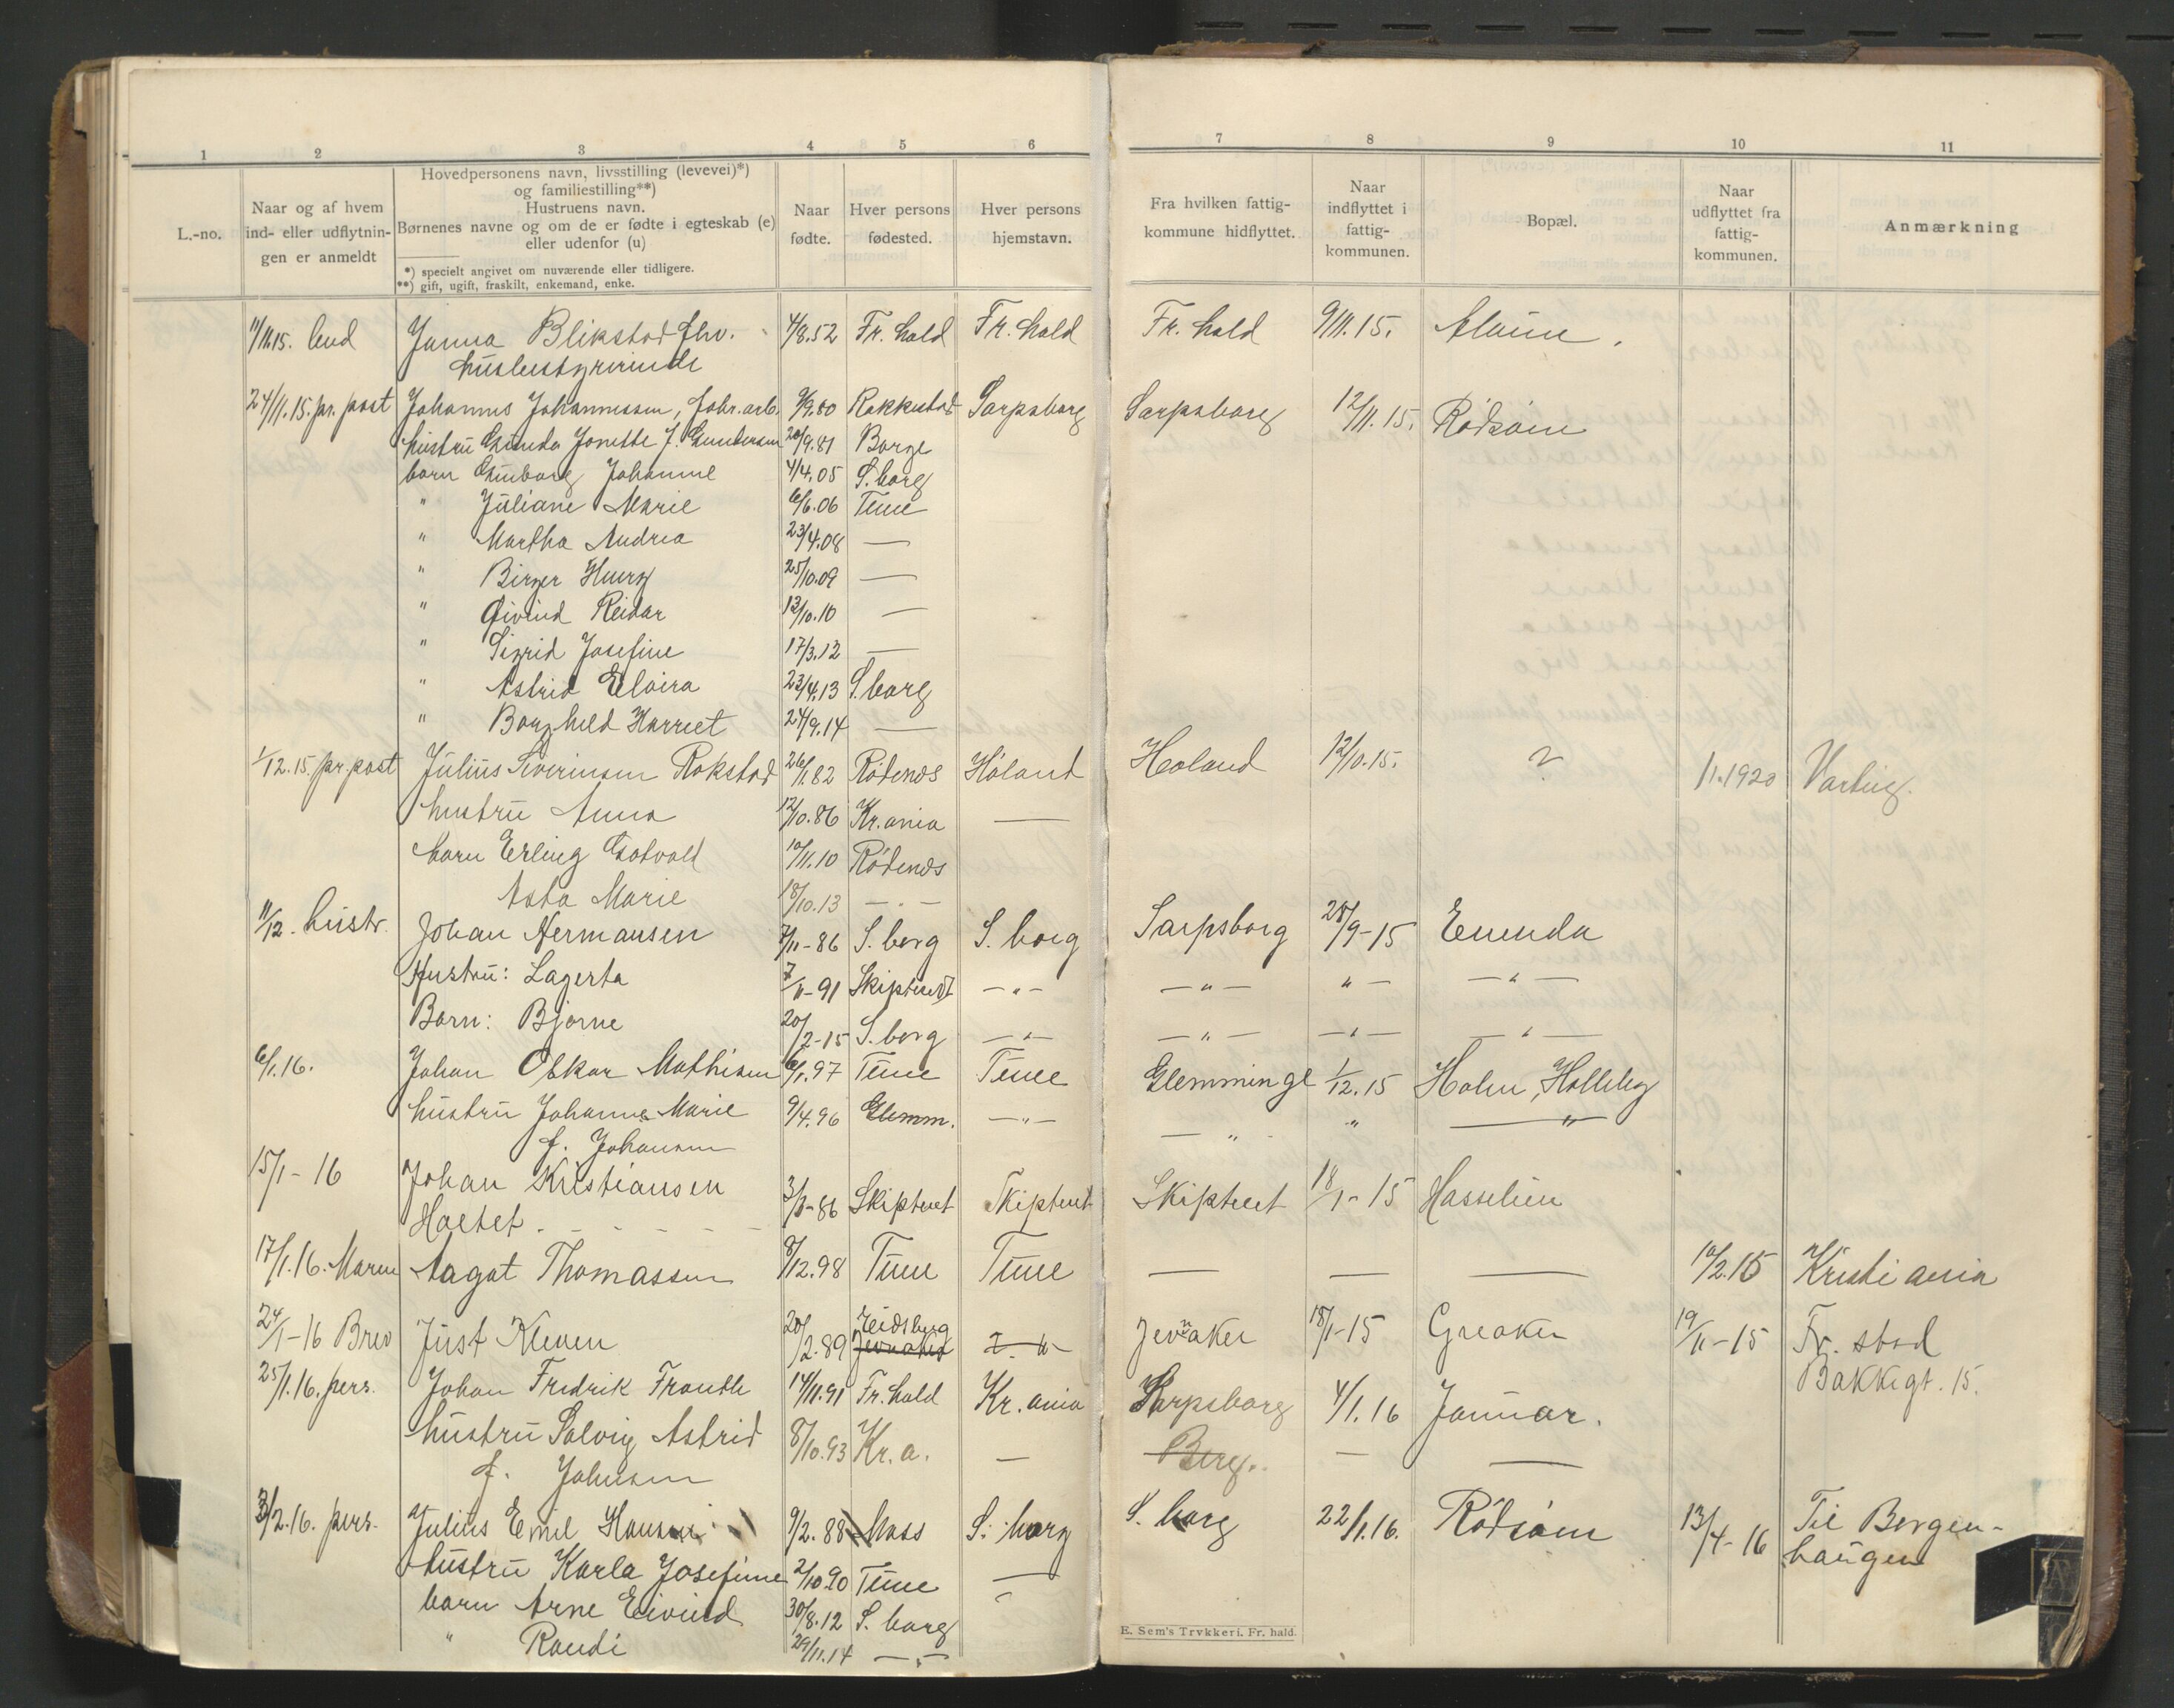 1 2 3 4 5 6 7 8 9 10 11
L.-no.
Naar og af hvem
ind- eller udflytnin-
gen er anmeldt
Hovedpersonens navn, livsstilling (levevei)*)
og familiestilling**)
Hustruens navn.
Børnenes navne og om de er fødte i egteskab (e)
eller udenfor (u)
*) specielt angivet om nuværende eller tidligere.
**) gift, ugift, fraskilt, enkemand, enke.
Naar
fødte.
Hver persons
fødested.
Hver persons
hjemstavn.
Fra hvilken fattig-
kommune hidflyttet.
Naar
indflyttet i
fattig-
kommunen.
Bopæl.
Naar
udflyttet fra
fattig-
kommunen.
Anmærkning
11/11.15. Janna Blikstad 4/8.52 Fr. hald Fr. hald Fr. hald 9/11.15.
husbestyrerinde
24/11.15. pr. post Johannes Johannessen, fabr. arb. 9/9.80 Rakkestad Sarpsborg Sarpsborg 12/11.15. Rødsåin
hustru Gunda Jonette f. Gundersen 20/9.81 Borge
barn Gunborg Johanne 4/4.05 S.borg
" Juliane Marie 6/6.06 Tune
" Martha Andrea 23/4.08 —
" Birger Henry 25/10.09 —
" Øivind Reidar 12/10.10 —
" Sigrid Josefine 17/3.12 —
" Astrid Elvira 23/4.13 S.borg
" Borghild Harriet 24/9.14 —
1/12.15. pr. post Julius Severinsen Rakstad 26/1.82 Rødenes Høland Høland 12/10.15. ? 11.1920 Varteig.
hustru Anna 12/10.86 Kr.ania —
barn Erling Gotvald 10/11.10 Rødenes
Asta Marie 18/10.13 — . —
11/12. hustr. Johan Hermansen 7/11-86 S. borg S. borg Sarpsborg 28/9-15 Enenda
Hustru: Lagerta 7/11-91 Skiptvedt — " — — " — " — — " —
Barn: Bjarne 20/2-15 S. borg — " — — " — — " — — " —
6/1.16. Johan Oskar Mathisen 6/1.97 Tune Tune Glemminge 1/12.15 Holm, Holleby
hustru Johanne Marie 9/4.96 Glemm. — " — — " — " — " —
f. Johansen
15/1-16 Johan Kristiansen
Haetet. 3/11-86 Skiptvet Skiptvet Skiptvet 18/1-15 Hasselien
17/1.16. Maren Aagot Thomassen 9/12.98 Tune Tune — — — 10/2.15 Kristiania
24/1-16 Brev Just Kleven 20/2.89 Eidsberg Jevnaker Jevnaker 18/1-15 Greaker 19/11-15 Fr. stad
Bakkegt. 15.
25/1.16. pers. Johan Fredrik Frantte 14/11.91 Fr. hald Kr. ania Sarpsborg 4/1.16 Januar.
hustru Solveig Astrid 8/10.93 Kr. a. — Berg. — —
f. Johnsen
3/2.16. pers. Julius Emil Hansen 9/2.88 Moss S. borg S. borg 22/1.16. Rødsåin 13/4-16 Til Borgen-
haugen
hustru Karla Josefine 2/10.90 Tune —
barn Arne Eivind 30/8.12 S. borg
" Randi 29/11.14 — " —
E. Sem's Trykkeri. Fr. hald.